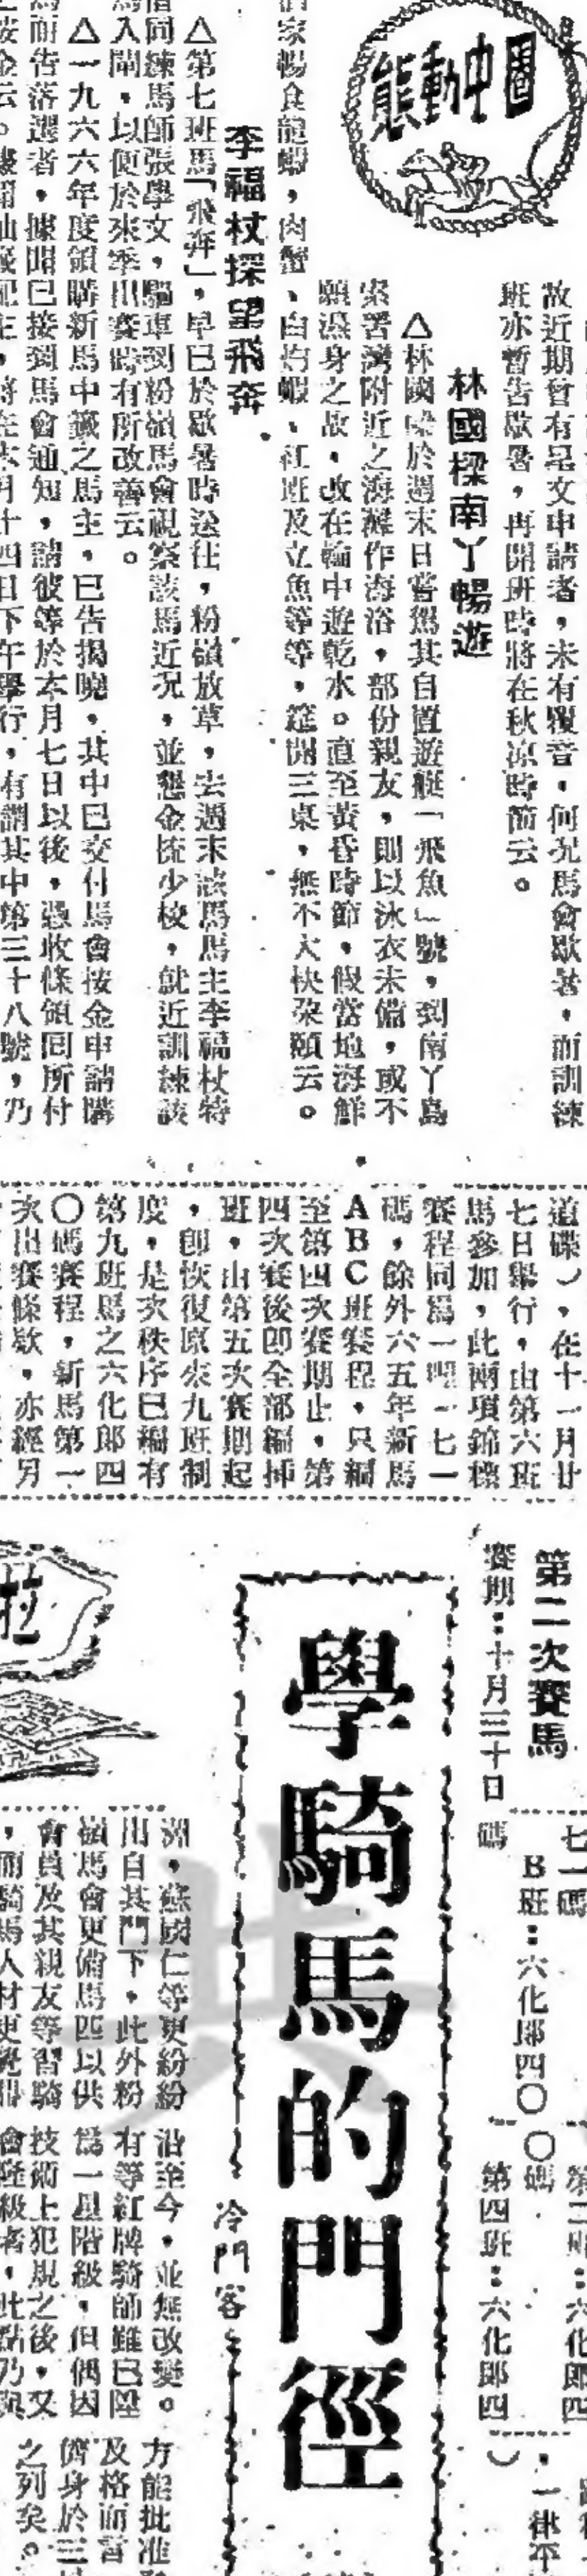 圈中動態
故近期曾有呈文申請者，未有覆音，何況馬會歇暑，而訓練
班亦暫告歇暑，再開班時將在秋凉時節云。
林國樑南丫暢遊
△林國樑於週末日嘗駕其自置遊艇「飛魚」號，到南丫島
索罟灣附近之海灘作海浴，部份親友，則以泳衣未備，或不
願濕身之故，改在輪中遊乾水。直至黃昏時節，假當地海鮮
酒家暢食龍蝦，肉蟹、白灼蝦、紅班及立魚等等，筵開三桌，無不大快朶頤云。
李福杖探望飛奔
△第七班馬「飛奔」，早已於歇暑時送往，粉嶺放草，去週末該馬馬主李福杖特
偕同練馬師張學文，驅車到粉嶺馬會視察該馬近況，並懇金梳少校，就近訓練該
馬入閘，以便於來季出賽時有所改善云。
△一九六六年度領購新馬中籤之馬主，已告揭曉，其中已交付馬會按金申請購
馬而告落選者，據聞已接到馬會通知，請彼等於本月七日以後，憑收條領回所付
按金云。
將在本月十四日下午舉行，有謂其中第三十八號，乃
道碟），在十一月廿
七日舉行，由第六班
馬參加，此兩項錦標
賽程同爲一哩一七一
碼，餘外六五年新馬
ABC班賽程，只編
至第四次賽期止，第
四次賽後即全部編挿
班，由第五次賽期起
，卽恢復原來九班制
度，是次秩序已編有
第九班馬之六化郎四
〇碼賽程，新馬第一
次出賽條欵，亦經另
第二次賽馬
賽期：十月三十日
七一碼
B班：六化郎四〇
〇碼
第四班：六化郎四
碼
一律平
學騎馬的門徑
冷門客
洲，蘇國仁等更紛紛
出自其門下，此外粉
嶺馬會更備馬匹以供
會員及其親友等習騎
，而騎馬人材更覺
沿至今，並無改變。
有等紅牌騎師雖已陞
爲一星階級，但偶因
技術上犯規之後，又
會降級者，此點乃與
方能批准
及格而言
儕身於三
之列矣。